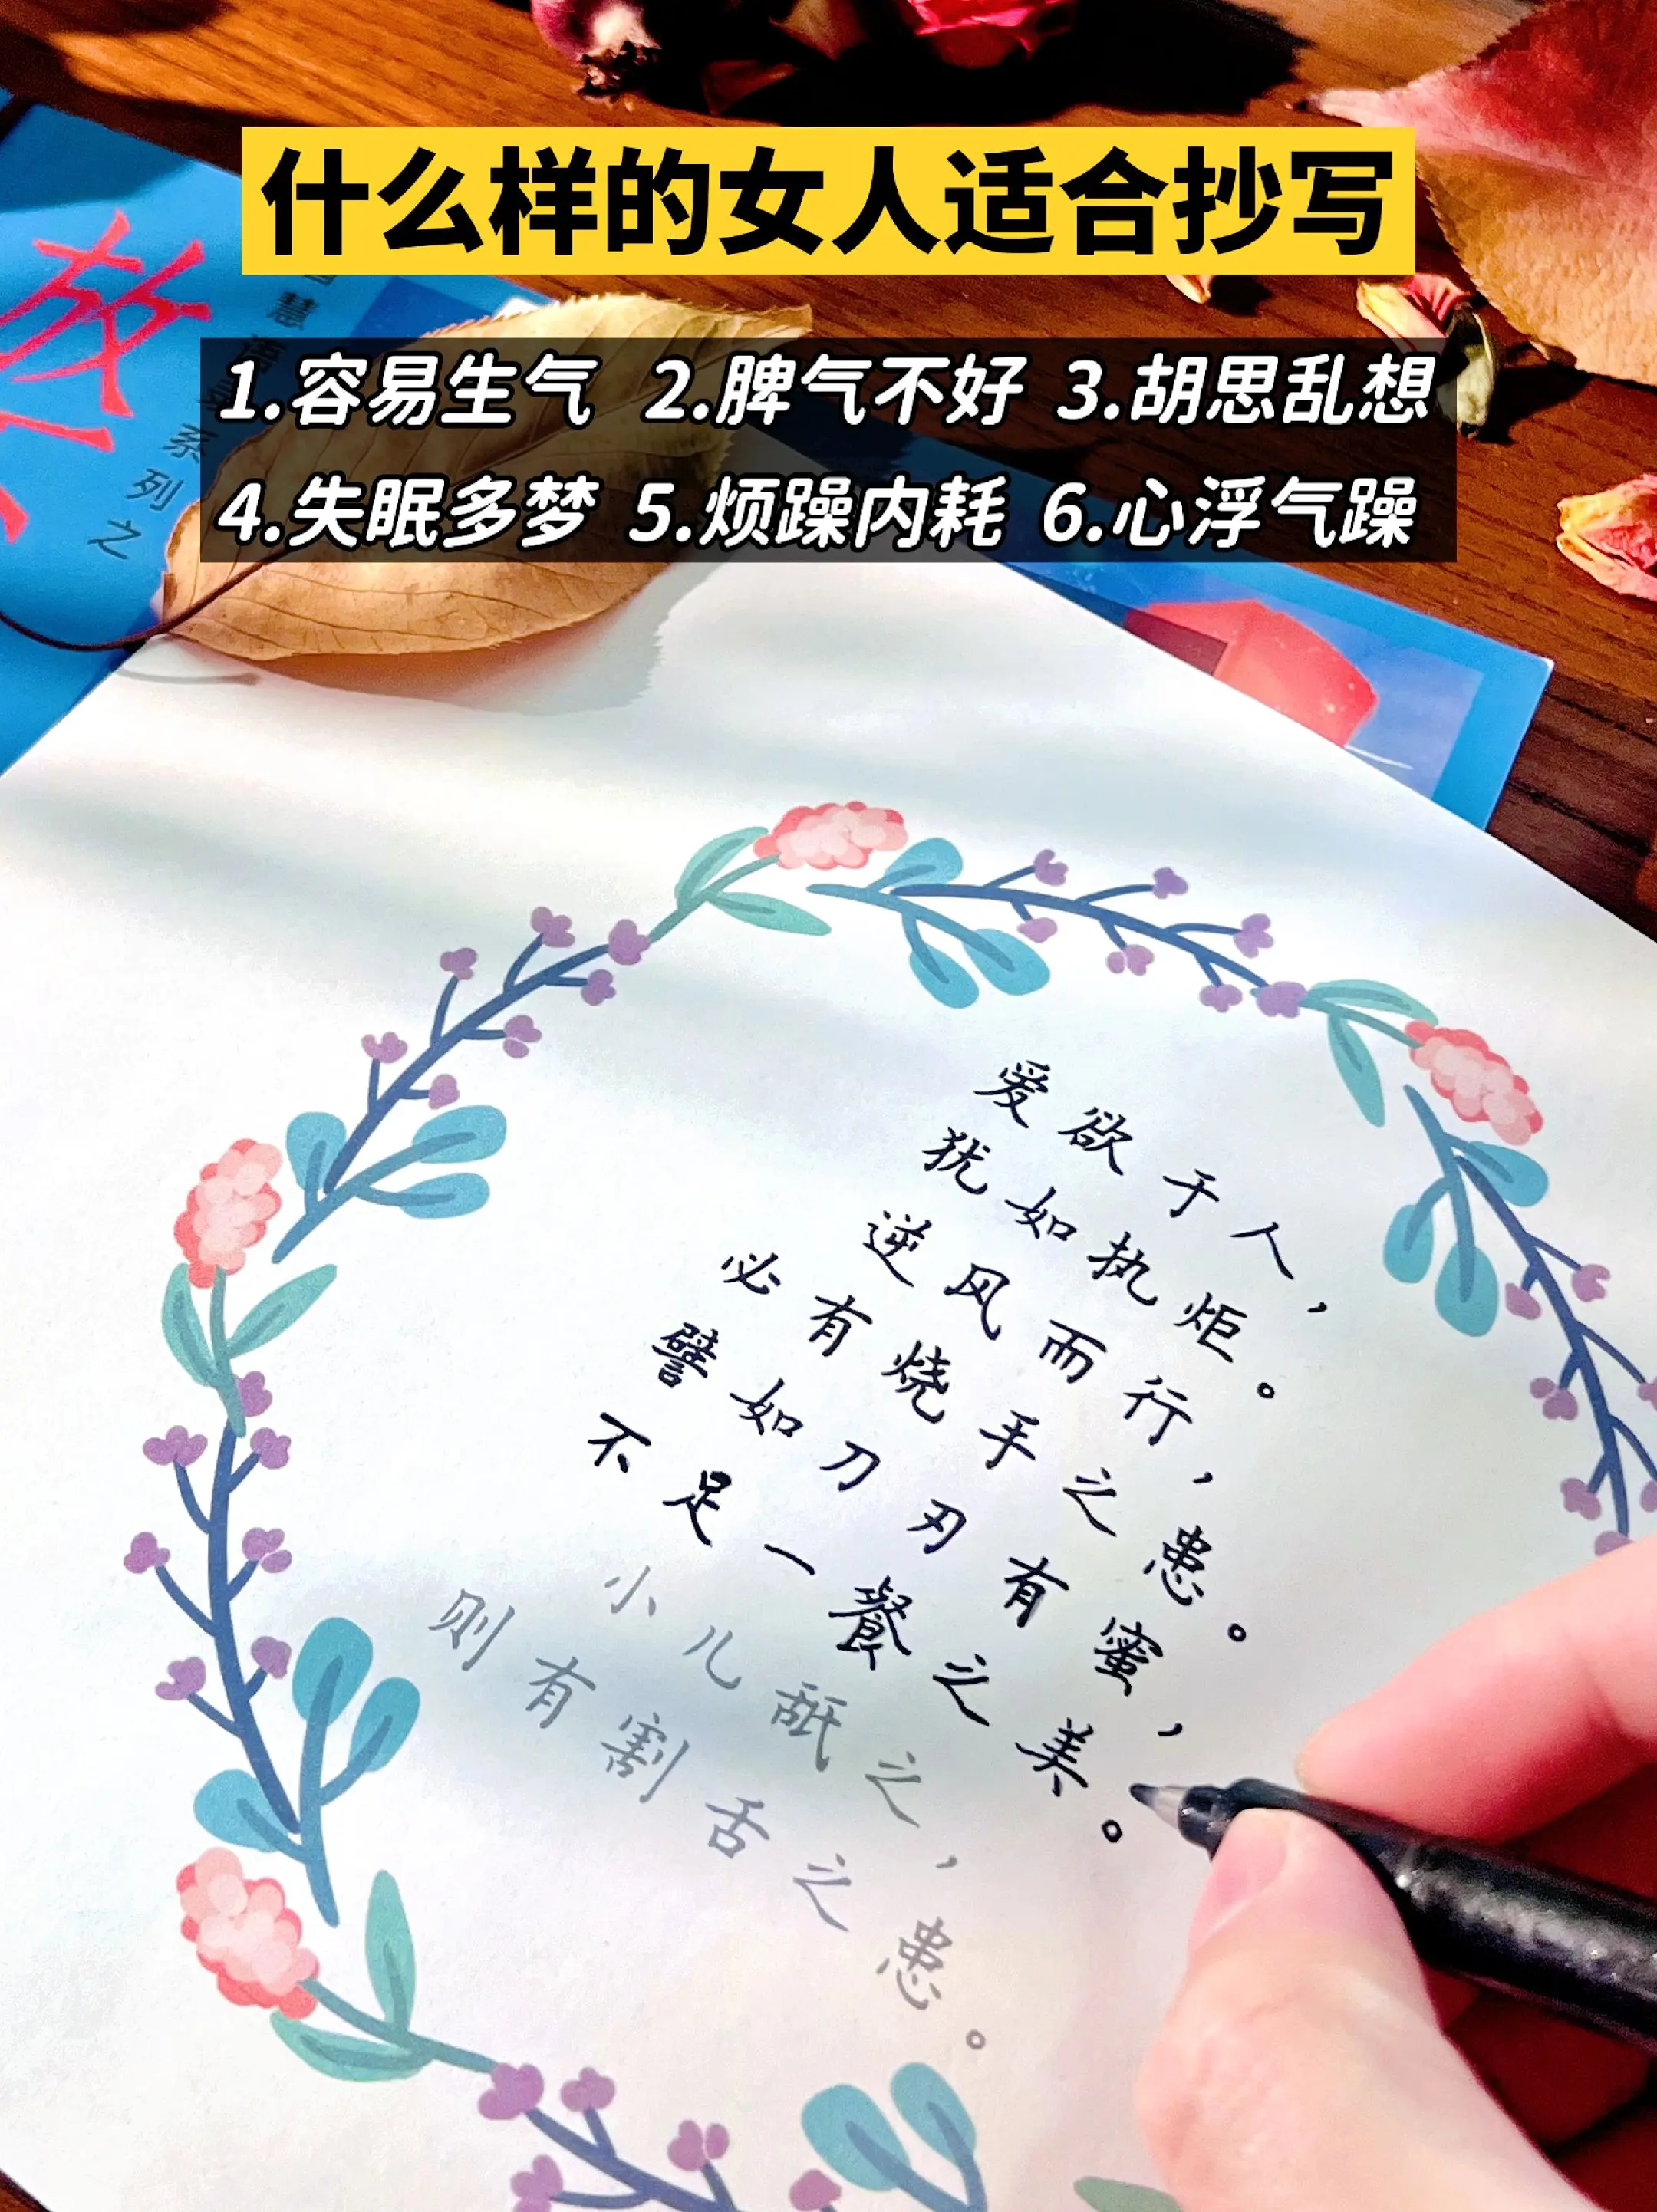 什么样的女人适合抄写
1.容易生气 2.脾气不好 3.胡思乱想
4.失眠多梦 5.烦躁内耗 6.心浮气躁
系列之
爱欲于人，
犹如执炬。
逆风而行，
必有烧手之患。
譬如刀刃有蜜，
不足一餐之美。
小儿舐之，
则有割舌之患。